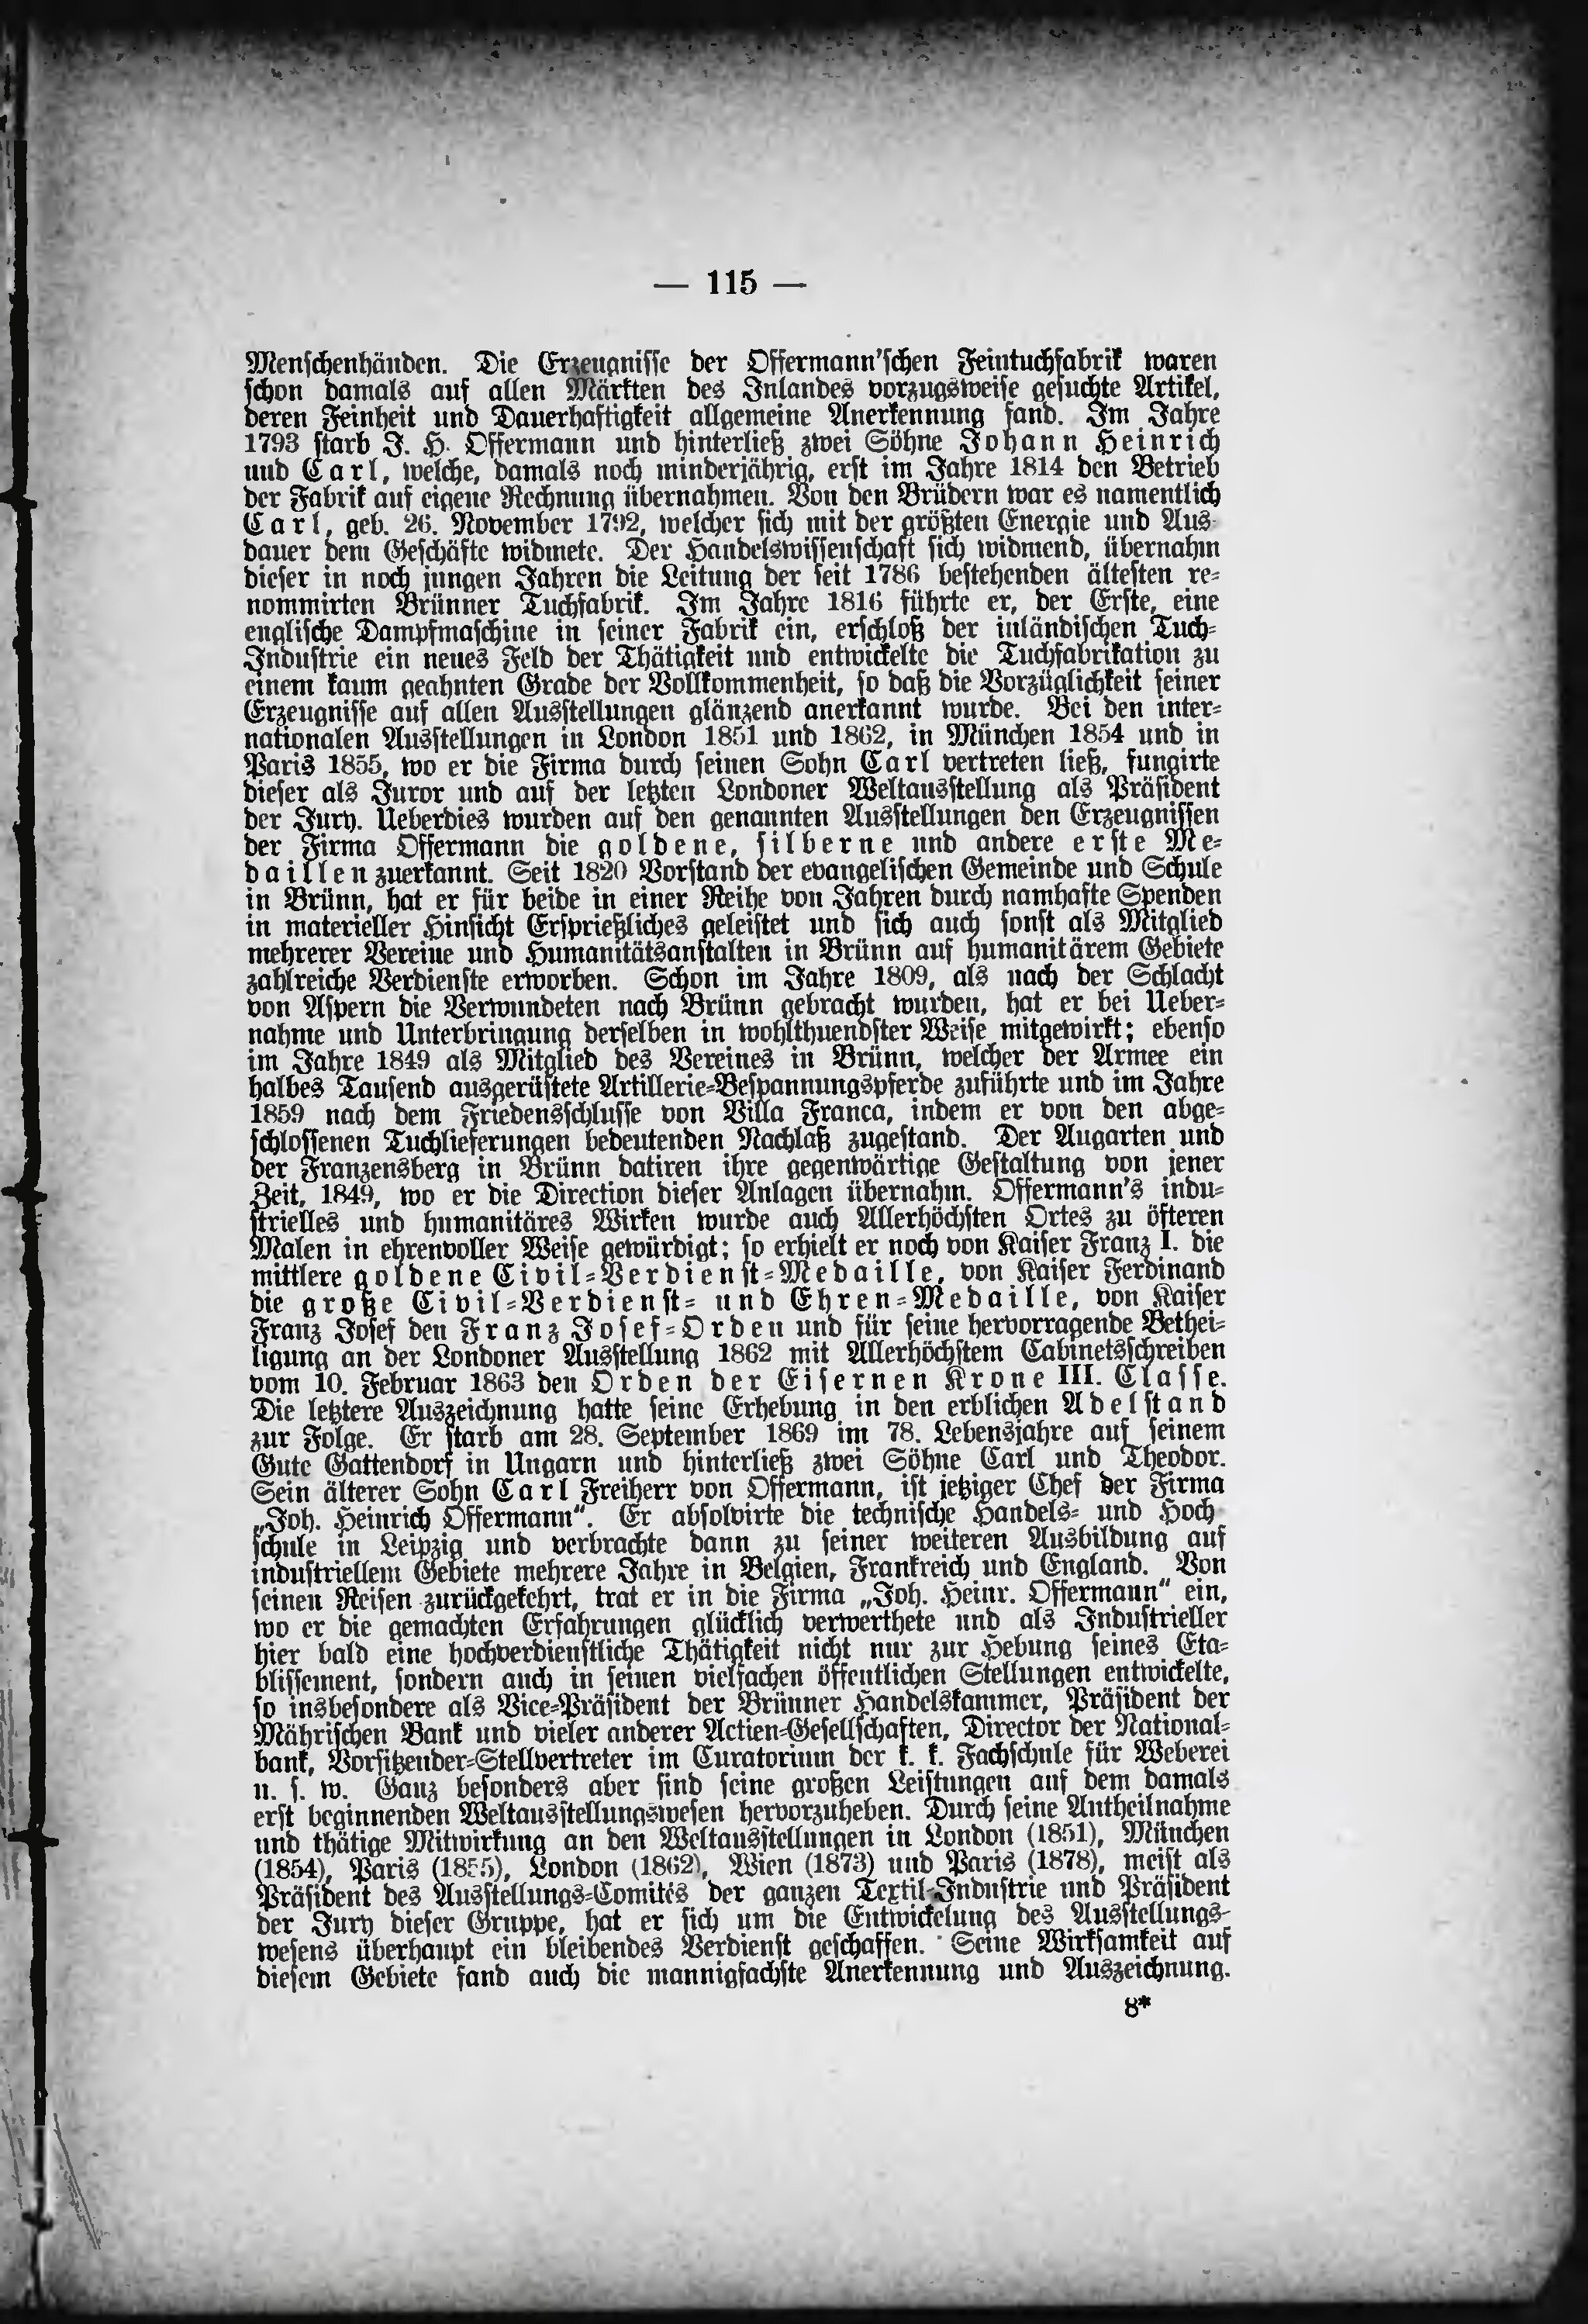 — 115 —
Menschenhänden. Die Erzeugnisse der Offermann'schen Feintuchfabrik waren
schon damals auf allen Märkten des Inlandes vorzugsweise gesuchte Artikel,
deren Feinheit und Dauerhaftigkeit allgemeine Anerkennung fand. Im Jahre
1793 starb J. H. Offermann und hinterließ zwei Söhne Johann Heinrich
und Carl, welche, damals noch minderjährig, erst im Jahre 1814 den Betrieb
der Fabrik auf eigene Rechnung übernahmen. Von den Brüdern war es namentlich
Carl, geb. 26. November 1792, welcher sich mit der größten Energie und Aus-
dauer dem Geschäfte widmete. Der Handelswissenschaft sich widmend, übernahm
dieser in noch jungen Jahren die Leitung der seit 1786 bestehenden ältesten re-
nommirten Brünner Tuchfabrik. Im Jahre 1816 führte er, der Erste, eine
englische Dampfmaschine in seiner Fabrik ein, erschloß der inländischen Tuch-
Industrie ein neues Feld der Thätigkeit und entwickelte die Tuchfabrikation zu
einem kaum geahnten Grade der Vollkommenheit, so daß die Vorzüglichkeit seiner
Erzeugnisse auf allen Ausstellungen glänzend anerkannt wurde. Bei den inter-
nationalen Ausstellungen in London 1851 und 1862, in München 1854 und in
Paris 1855, wo er die Firma durch seinen Sohn Carl vertreten ließ, fungirte
dieser als Juror und auf der letzten Londoner Weltausstellung als Präsident
der Jury. Ueberdies wurden auf den genannten Ausstellungen den Erzeugnissen
der Firma Offermann die goldene, silberne und andere erste Me-
daillen zuerkannt. Seit 1820 Vorstand der evangelischen Gemeinde und Schule
in Brünn, hat er für beide in einer Reihe von Jahren durch namhafte Spenden
in materieller Hinsicht Ersprießliches geleistet und sich auch sonst als Mitglied
mehrerer Vereine und Humanitätsanstalten in Brünn auf humanitärem Gebiete
zahlreiche Verdienste erworben. Schon im Jahre 1809, als nach der Schlacht
von Aspern die Verwundeten nach Brünn gebracht wurden, hat er bei Ueber-
nahme und Unterbringung derselben in wohlthuendster Weise mitgewirkt; ebenso
im Jahre 1849 als Mitglied des Vereines in Brünn, welcher der Armee ein
halbes Tausend ausgerüstete Artillerie-Bespannungspferde zuführte und im Jahre
1859 nach dem Friedensschlusse von Villa Franca, indem er von den abge-
schlossenen Tuchlieferungen bedeutenden Nachlaß zugestand. Der Augarten und
der Franzensberg in Brünn datiren ihre gegenwärtige Gestaltung von jener
Zeit, 1849, wo er die Direction dieser Anlagen übernahm. Offermann's indu-
strielles und humanitäres Wirken wurde auch Allerhöchsten Ortes zu öfteren
Malen in ehrenvoller Weise gewürdigt; so erhielt er noch von Kaiser Franz I. die
mittlere goldene Civil-Verdienst-Medaille, von Kaiser Ferdinand
die große Civil-Verdienst- und Ehren-Medaille, von Kaiser
Franz Josef den Franz Josef-Orden und für seine hervorragende Bethei-
ligung an der Londoner Ausstellung 1862 mit Allerhöchstem Cabinetsschreiben
vom 10. Februar 1863 den Orden der Eisernen Krone III. Classe.
Die letztere Auszeichnung hatte seine Erhebung in den erblichen Adelstand
zur Folge. Er starb am 28. September 1869 im 78. Lebensjahre auf seinem
Gute Gattendorf in Ungarn und hinterließ zwei Söhne Carl und Theodor.
Sein älterer Sohn Carl Freiherr von Offermann, ist jetziger Chef der Firma
„Joh. Heinrich Offermann“. Er absolvirte die technische Handels- und Hoch-
schule in Leipzig und verbrachte dann zu seiner weiteren Ausbildung auf
industriellem Gebiete mehrere Jahre in Belgien, Frankreich und England. Von
seinen Reisen zurückgekehrt, trat er in die Firma „Joh. Heinr. Offermann“ ein,
wo er die gemachten Erfahrungen glücklich verwerthete und als Industrieller
hier bald eine hochverdienstliche Thätigkeit nicht nur zur Hebung seines Eta-
blissement, sondern auch in seinen vielfachen öffentlichen Stellungen entwickelte,
so insbesondere als Vice-Präsident der Brünner Handelskammer, Präsident der
Mährischen Bank und vieler anderer Actien-Gesellschaften, Director der National-
bank, Vorsitzender-Stellvertreter im Curatorium der k. k. Fachschule für Weberei
u. s. w. Ganz besonders aber sind seine großen Leistungen auf dem damals
erst beginnenden Weltausstellungswesen hervorzuheben. Durch seine Antheilnahme
und thätige Mitwirkung an den Weltausstellungen in London (1851), München
(1854), Paris (1855), London (1862), Wien (1873) und Paris (1878), meist als
Präsident des Ausstellungs-Comités der ganzen Textil-Industrie und Präsident
der Jury dieser Gruppe, hat er sich um die Entwickelung des Ausstellungs-
wesens überhaupt ein bleibendes Verdienst geschaffen. Seine Wirksamkeit auf
diesem Gebiete fand auch die mannigfachste Anerkennung und Auszeichnung.
8*